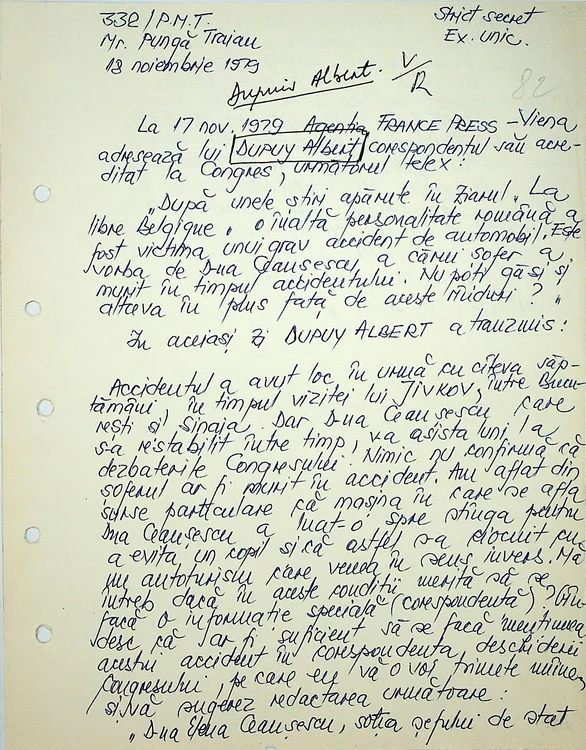 332/P.M.T.
Strict secret
Mr. Pungă Traian
Ex. unic.
18 noiembrie 1979
Dupuis Albert. V/R
82
La 17 nov. 1979 Agenția FRANCE PRESS – Viena
adresează lui DUPUY Albert, corespondentul său acre-
ditat la Congres, următorul telex:
„După unele știri apărute în ziarul „La
libre Belgique" o înaltă personalitate română a
fost victima unui grav accident de automobil. Este
vorba de D-na Ceaușescu, a cărui șofer a
murit în timpul accidentului. Nu poți găsi și
altceva în plus față de aceste rînduri?"
În aceiași zi DUPUY ALBERT a tranzmis:
Accidentul a avut loc în urmă cu cîteva săp-
tămâni în timpul vizitei lui JIVKOV, între Bucu-
rești și Sinaia. Dar D-na Ceaușescu care
s-a restabilit între timp, va asista luni la
dezbaterile Congresului. Nimic nu confirmă că
șoferul ar fi murit în accident. Am aflat din
surse particulare că mașina în care se afla
D-na Ceaușescu a luat-o spre stînga pentru
a evita un copil și că astfel s-a ciocnit cu
un autoturism care venea în sens invers. Mă
întreb dacă în aceste condiții merită să se
facă o informație specială (corespondență)? Gîn-
desc că ar fi suficient să se facă mențiunea
acestui accident în corespondența deschiderii
Congresului, pe care eu vă o voi trimete mîine,
și vă sugerez redactarea următoare:
„D-na Elena Ceaușescu, soția șefului de stat